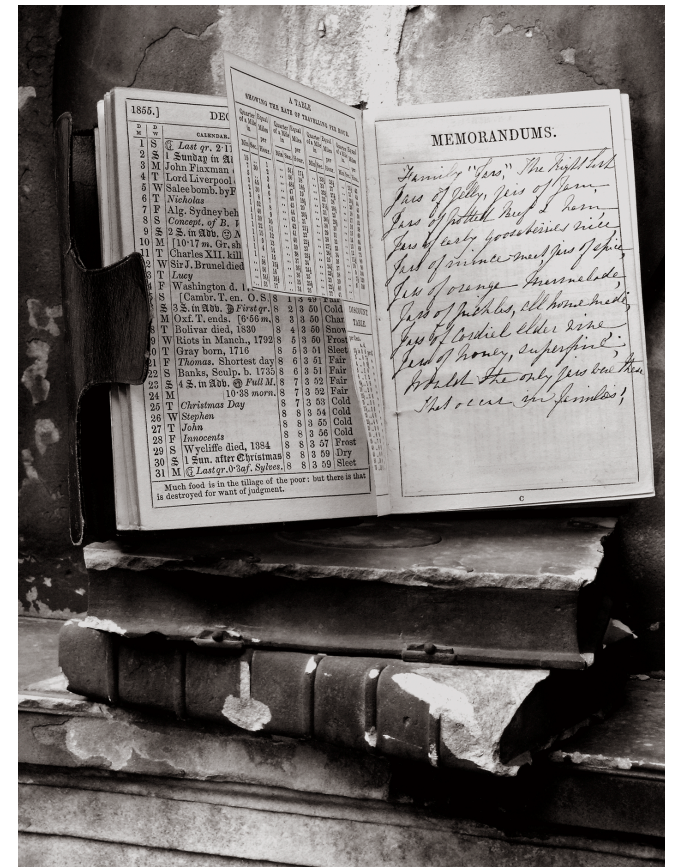 1855.] DEC
D M D W CALENDAR.
1 S ☾ Last qr. 2·1
2 S 1 Sunday in Ad
3 M John Flaxman
4 T Lord Liverpool
5 W Salee bomb. by F
6 T Nicholas
7 F Alg. Sydney beh
8 S Concept. of B.
9 S 2 S. in Adv.
10 M [10·17 m. Gr. sh
11 T Charles XII. kill
12 W Sir J. Brunel died
13 T Lucy
F Washington d.
S [Camb. T. en. O. S.
S 3 S. in Adv. ☽ First qr. 8 2 3 50 Cold
M Oxf. T. ends. [6·56 m. 8 3 3 50
T Bolivar died, 1830 8 4 3 50 Snow
9 W Riots in Manch., 1792 8 5 3 50 Frost
0 T Gray born, 1716 8 5 3 51 Sleet
21 F Thomas. Shortest day 8 6 3 51 Fair
22 S Banks, Sculp. b. 1735 8 6 3 51 Fair
23 S 4 S. in Adv. Full M. 8 7 3 52 Fair
24 M 10·38 morn. 8 7 3 52 Fair
25 T Christmas Day 8 7 3 53 Cold
26 W Stephen 8 8 3 54 Cold
27 T John 8 8 3 55 Cold
28 F Innocents 8 8 3 56 Cold
29 S Wycliffe died, 1384 8 8 3 57 Frost
30 S 1 Sun. after Christmas 8 8 3 59 Dry
31 M ☾ Last qr. 0·3af. Sylves. 8 8 3 59 Sleet
Much food is in the tillage of the poor; but there is that
is destroyed for want of judgment.
A TABLE
SHOWING THE RATE OF TRAVELLING PER HOUR.
Quarter of a Mile in Equal Miles per Quarter of a Mile in Equal Miles per Quarter of a Mile in Equal Miles per
Min. Sec. Hour. Min. Sec. Hour. Min. Sec. Hour.
DISCOUNT
TABLE
MEMORANDUMS.
Family "Jars," The Right Sort
Jars of Jelly, Jars of Jam
Jars of potted Beef & ham
Jars of early gooseberries nice
Jars of mince meat Jars of spice
Jars of orange marmalade,
Jars of pickles, all home made,
Jars of Cordial elder wine
Jars of honey, superfine;
Would the only Jars were these
That occur in families!
C